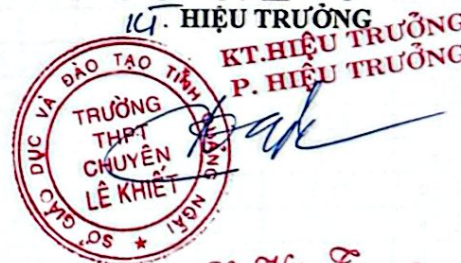 KT. HIỆU TRƯỞNG
KT.HIỆU TRƯỞNG
P. HIỆU TRƯỞNG
SỞ GIÁO DỤC VÀ ĐÀO TẠO TỈNH QUẢNG NGÃI
TRƯỜNG
THPT
CHUYÊN
LÊ KHIẾT